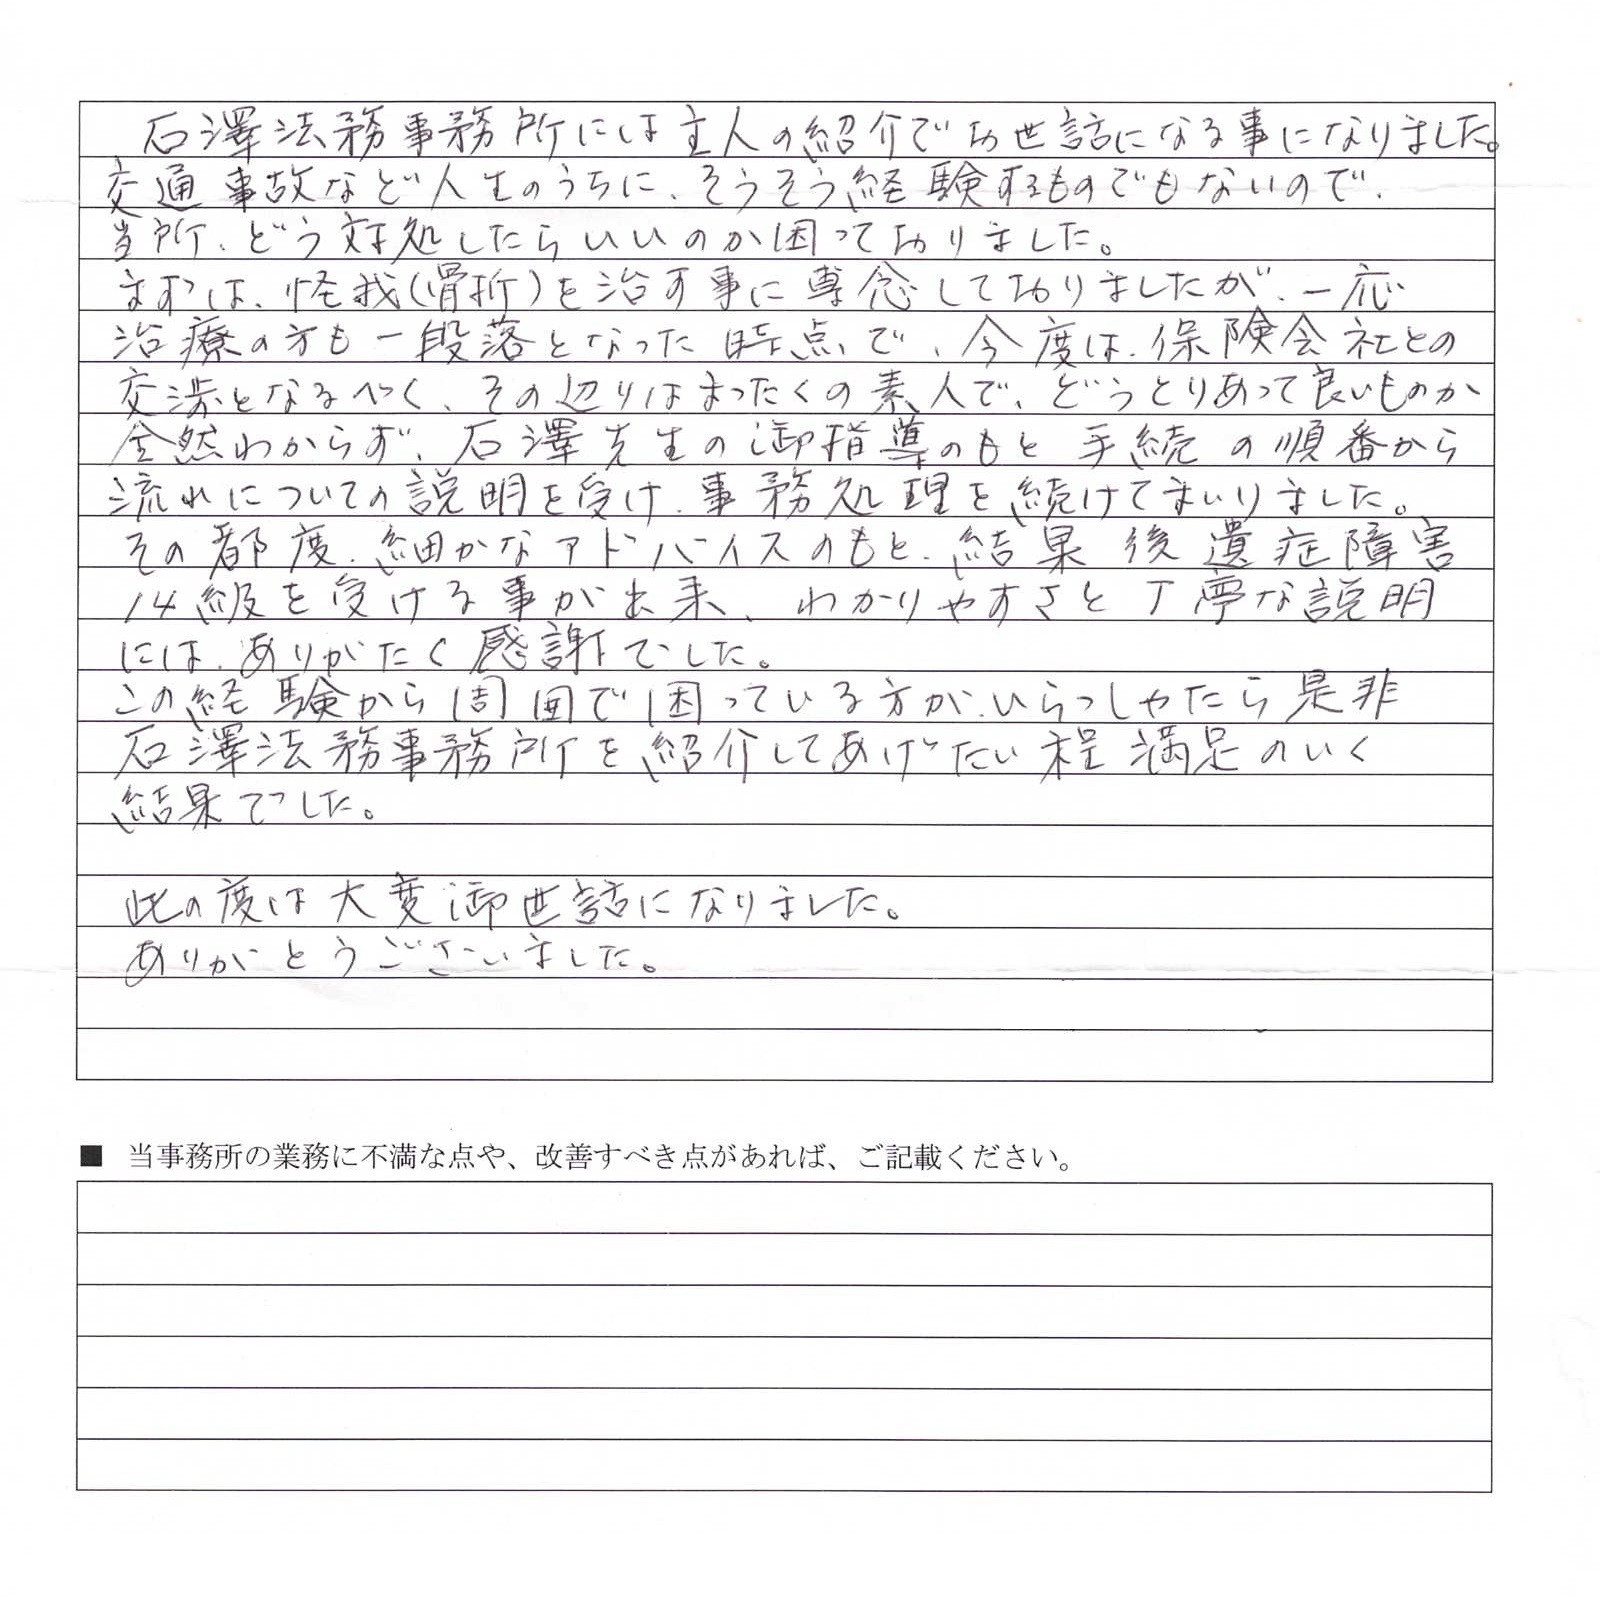 石澤法務事務所には主人の紹介でお世話になる事になりました。
交通事故など人生のうちに、そうそう経験するものでもないので、
当所、どう対処したらいいのか困っておりました。
まずは、怪我(骨折)を治す事に専念しておりましたが、一応
治療の方も一段落となった時点で、今度は、保険会社との
交渉となるべく、その辺りはまったくの素人で、どうとりあって良いものか
全然わからず、石澤先生の御指導のもと手続の順番から
流れについての説明を受け、事務処理を続けてまいりました。
その都度、細かなアドバイスのもと、結果後遺症障害
14級を受ける事が出来、わかりやすさと丁寧な説明
には、ありがたく感謝でした。
この経験から周囲で困っている方が、いらっしゃたら是非
石澤法務事務所を紹介してあげたい程満足のいく
結果でした。
此の度は大変御世話になりました。
ありがとうございました。
■ 当事務所の業務に不満な点や、改善すべき点があれば、ご記載ください。